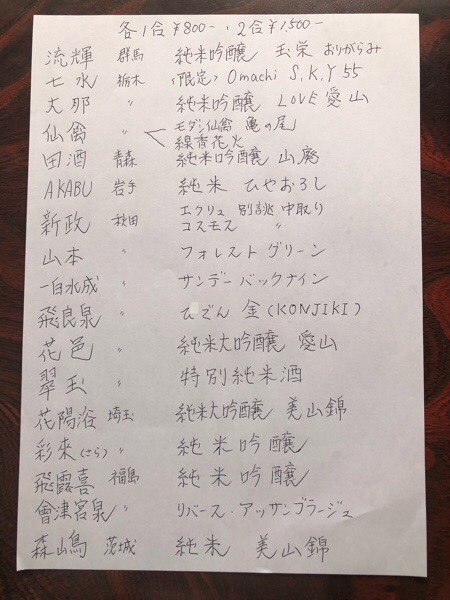 各1合 ¥800-、2合 ¥1,500-
流輝 群馬 純米吟醸 玉栄 おりがらみ
七水 栃木 (限定) Omachi S.K.Y 55
大那 〃 純米吟醸 LOVE 愛山
仙禽 〃 モダン仙禽 亀の尾
線香花火
田酒 青森 純米吟醸 山廃
AKABU 岩手 純米 ひやおろし
新政 秋田 エクリュ 別誂 中取り
コスモス 〃
山本 〃 フォレスト グリーン
一白水成 〃 サンデー バックナイン
飛良泉 〃 ひでん 金 (KONJIKI)
花邑 〃 純米大吟醸 愛山
翠玉 〃 特別純米酒
花陽浴 埼玉 純米大吟醸 美山錦
彩來(さら) 〃 純米吟醸
飛露喜 福島 純米吟醸
會津宮泉 〃 リバース・アッサンブラージュ
森嶋 茨城 純米 美山錦